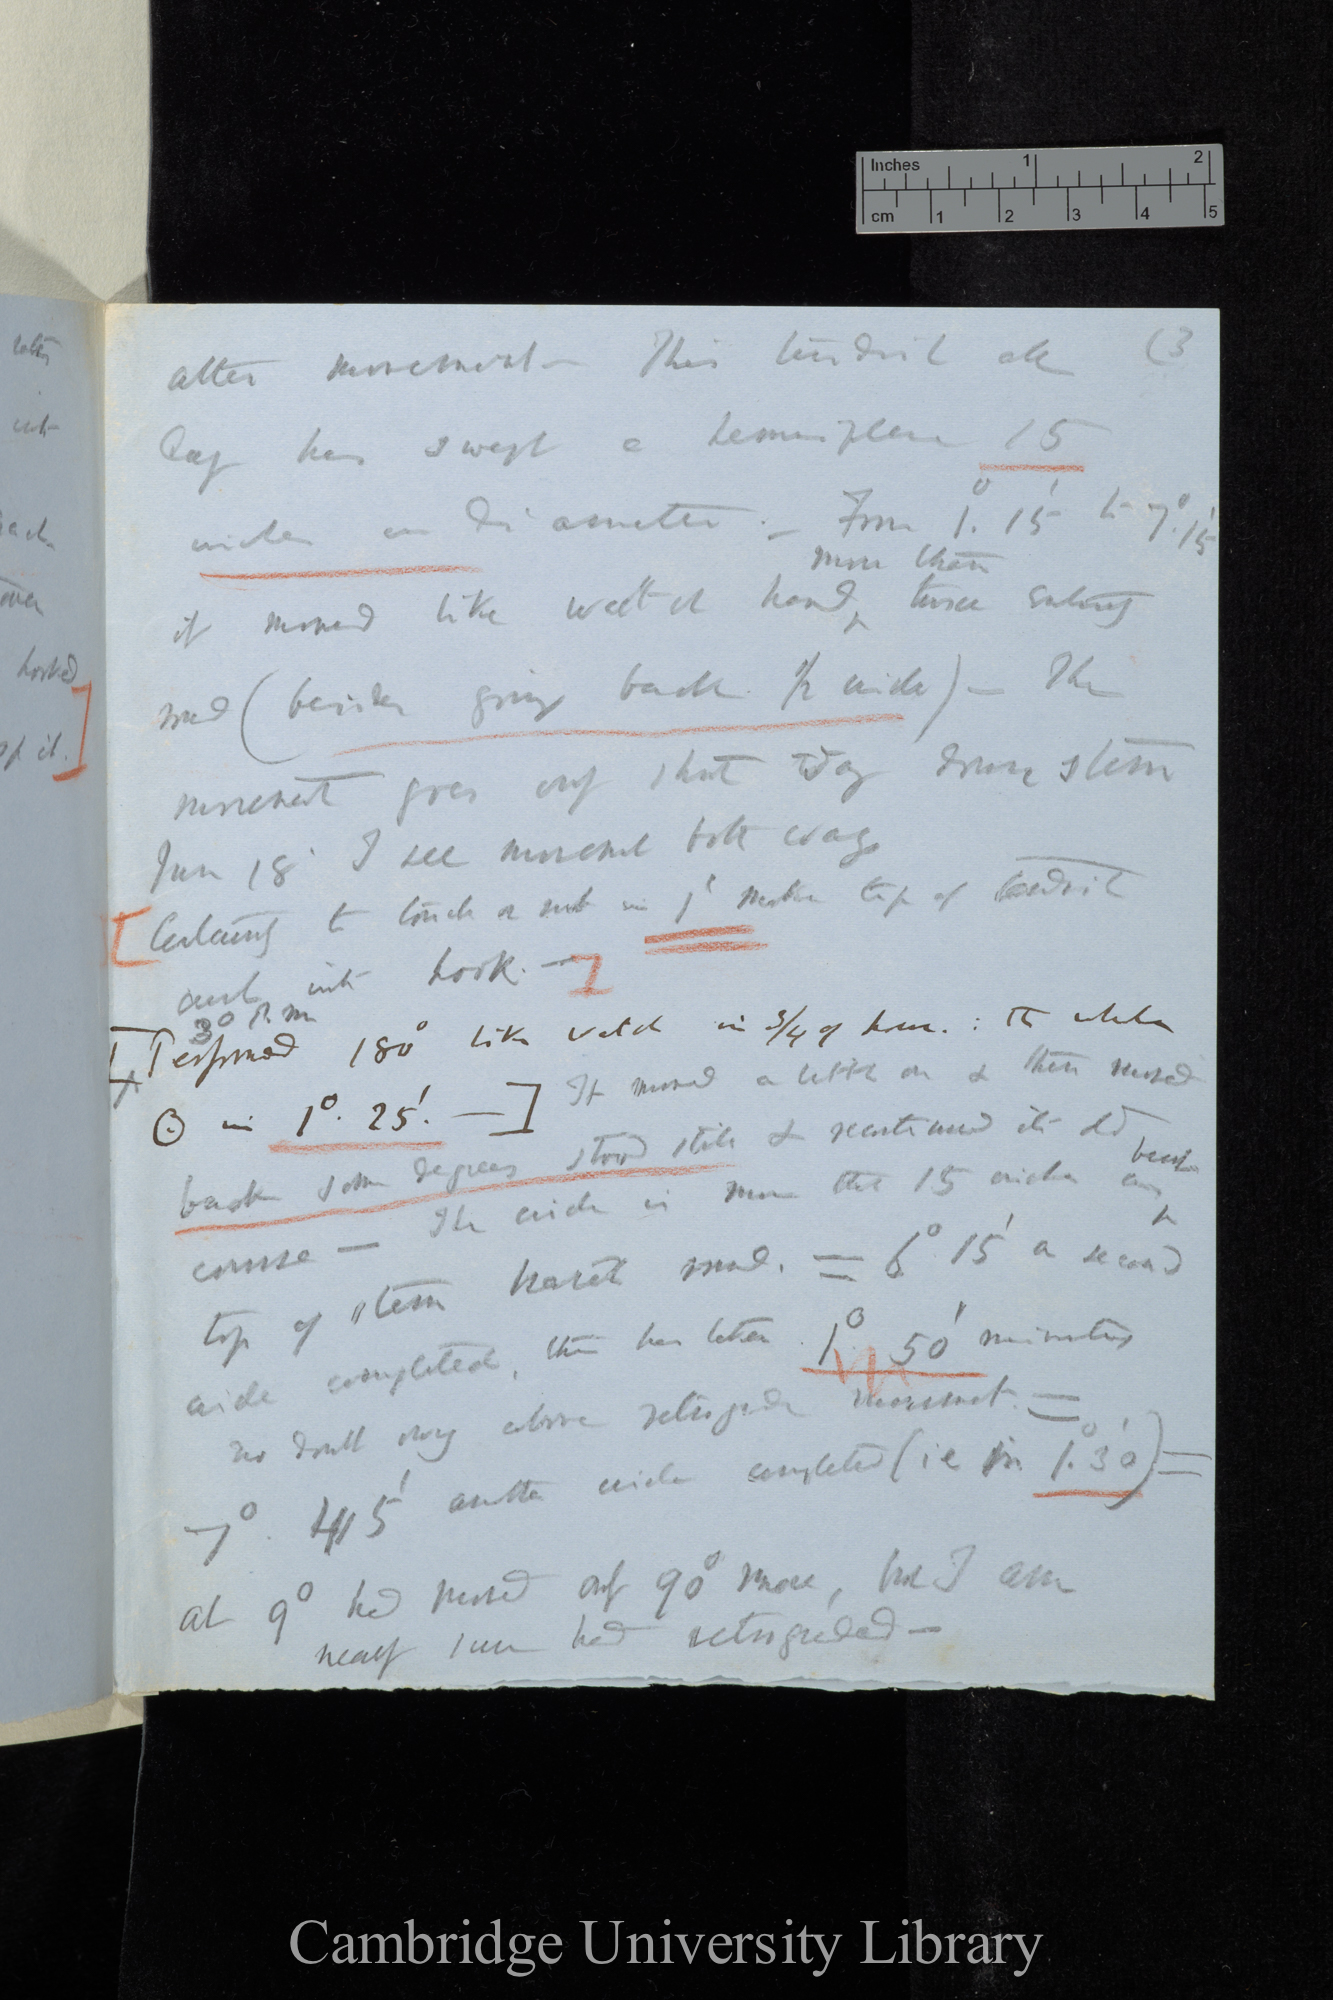 Inches 1 2
cm 1 2 3 4 5
(3
after movement – This tendril all
day has swept a 15
inches in Diameter. – From 1°. 15' to 7°. 15'
more than
it moved like watch hand twice entirely
round (besides going back ½ circle) – The
movement goes only short way down stem
June 18 I see movement both ways
[Certainly to touch or rub in 1' makes tip of tendril
curl into hook. –]
3° P.m
[Performed 180° like watch in 3/4 of hour. : the whole
⊙ in 1°. 25'. –] It moved a little on & then moved
back some degrees stood still & recommenced its old
course – The circle is more than 15 inches
top of stem round. = 6° 15' a second
circle completed, this has taken 1° 50' minutes
no doubt owing above retrograde movement. =
7°. 45' another circle completed (ie in 1°. 30') =
at 9° had moved only 90° more, but I am
nearly sure had retrograded –
hooked
of it.]
Cambridge University Library